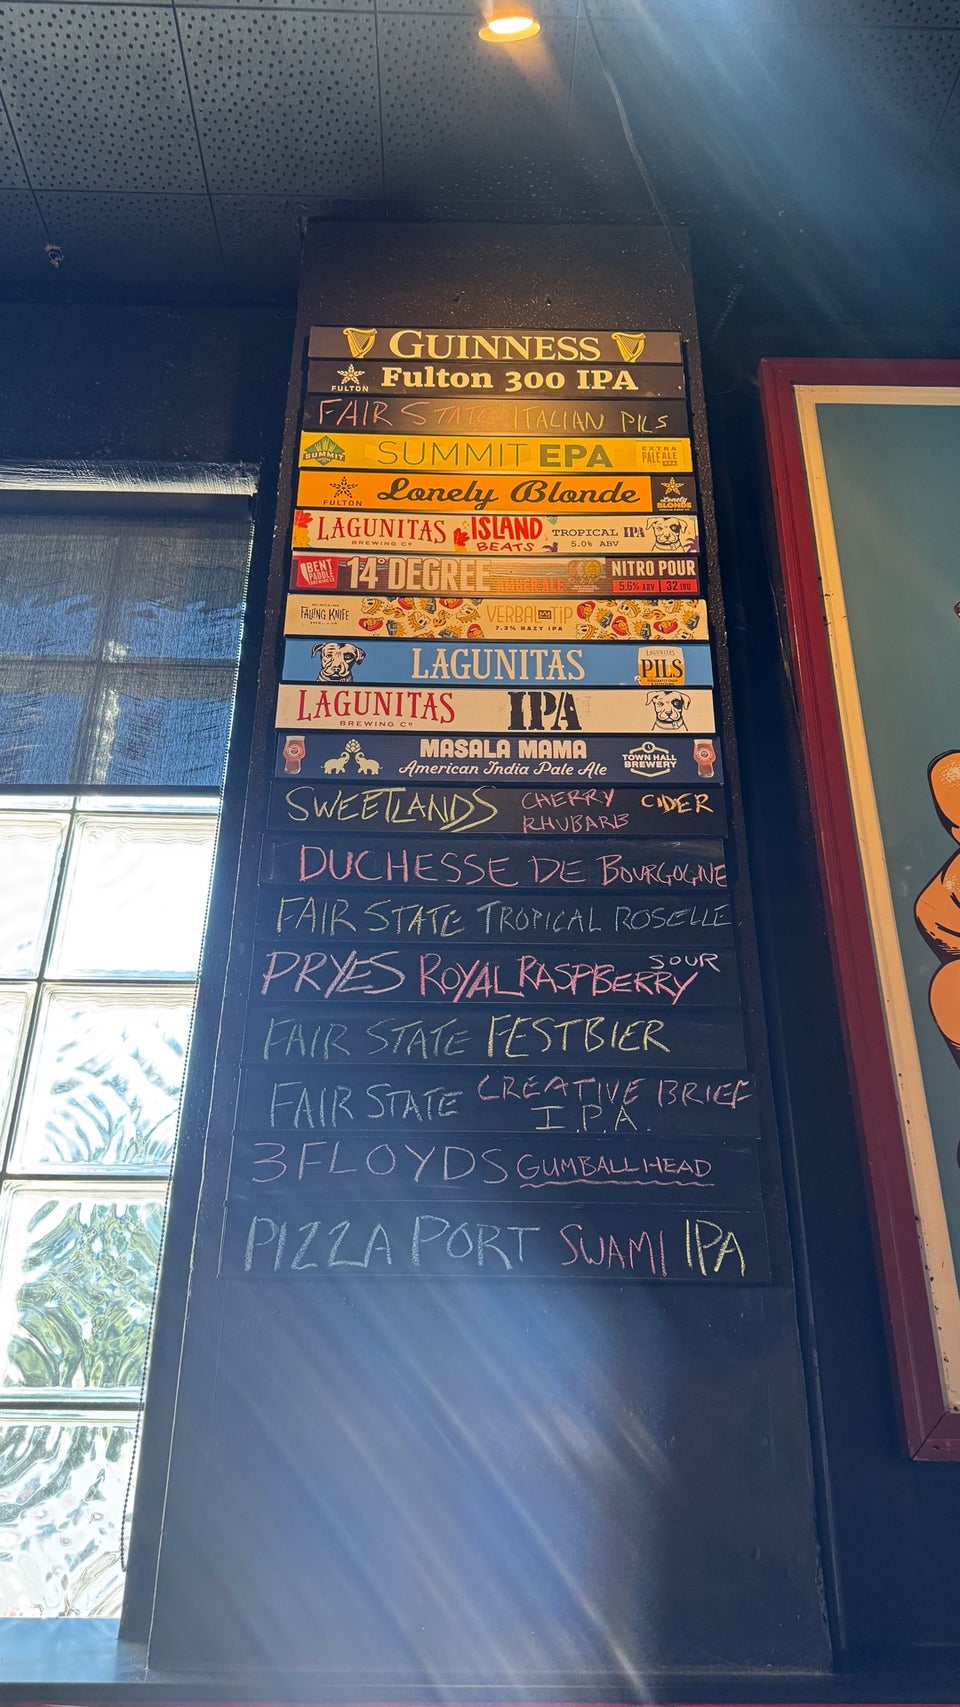 GUINNESS
FULTON Fulton 300 IPA
FAIR STATE ITALIAN PILS
SUMMIT SUMMIT EPA EXTRA PALE ALE
FULTON Lonely Blonde Lonely BLONDE
LAGUNITAS BREWING CO ISLAND BEATS TROPICAL IPA 5.0% ABV
BENT PADDLE 14° DEGREE NITRO POUR 5.6% ABV 32 IBU
FALLING KNIFE VERBAL TIP 7.3% HAZY IPA
LAGUNITAS LAGUNITAS PILS
LAGUNITAS BREWING CO IPA
MASALA MAMA
American India Pale Ale
TOWN HALL BREWERY
SWEETLANDS CHERRY RHUBARB CIDER
DUCHESSE DE BOURGOGNE
FAIR STATE TROPICAL ROSELLE
PRYES ROYAL RASPBERRY SOUR
FAIR STATE FESTBIER
FAIR STATE CREATIVE BRIEF
I.P.A.
3 FLOYDS GUMBALLHEAD
PIZZA PORT SWAMI IPA